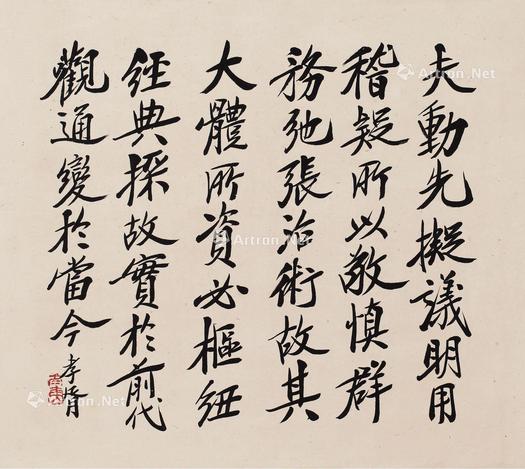 夫動先擬議明用
稽疑所以敬慎群
務弛張治術故其
大體所資必樞紐
經典採故實於前代
觀通變於當今 孝胥
Artron.Net
Artron.Net
Artron.Net
Artron.Net